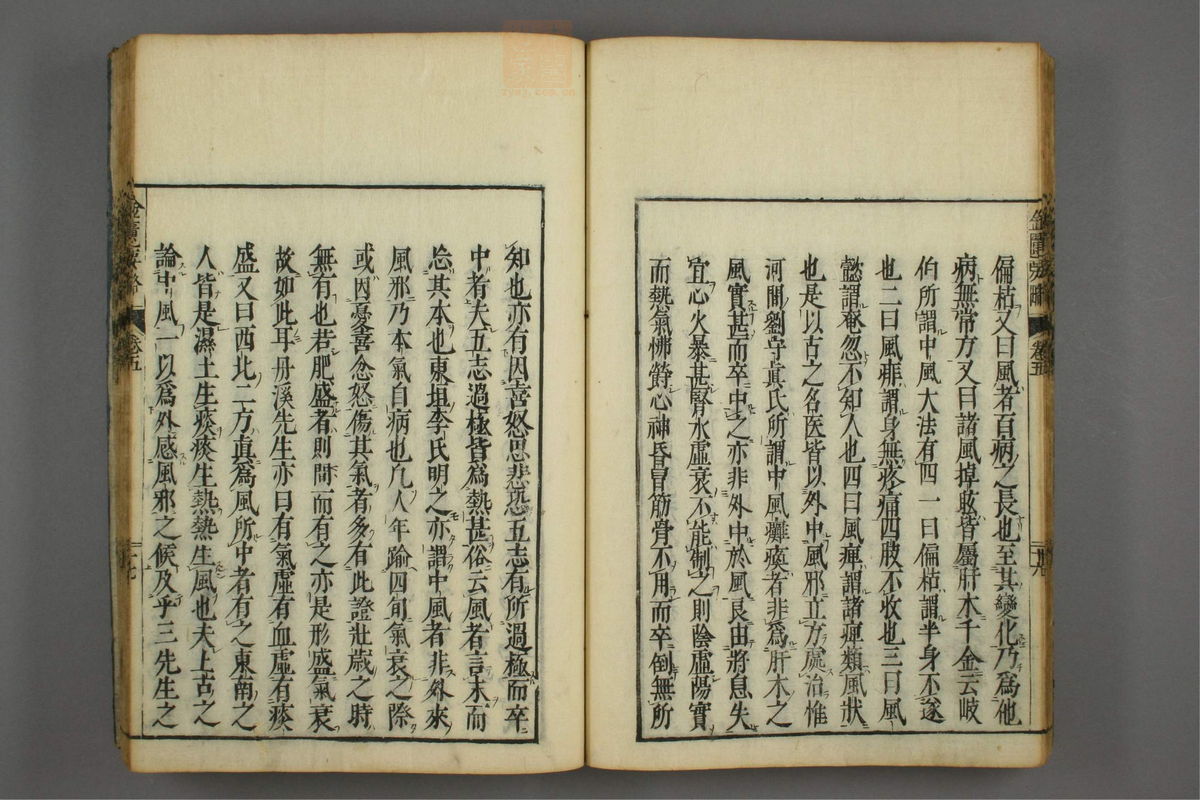 偏枯又曰風者百病之長也至其變化乃爲他
病無常方又曰諸風掉眩皆屬肝木千金云岐
伯所謂中風大法有四一曰偏枯謂半身不遂
也二曰風痱謂身無疼痛四肢不收也三曰風
懿謂奄忽不知人也四曰風痺謂諸痺類風狀
也是以古之名医皆以外中風邪立方處治惟
河間劉守眞氏所謂中風癱瘓者非爲肝木之
風實甚而卒中之亦非外中於風良由將息失
宜心火暴甚腎水虛衰不能制之則陰虛陽實
而熱氣怫鬱心神昏冒筋骨不用而卒倒無所
卷五
知也亦有因喜怒思悲恐五志有所過極而卒
中者夫五志過極皆爲熱甚俗云風者言末而
忘其本也東垣李氏明之亦謂中風者非外來
風邪乃本氣自病也凡人年踰四旬氣衰之際
或因憂喜忿怒傷其氣者多有此證壯歲之時
無有也若肥盛者則間而有之亦是形盛氣衰
故如此耳丹溪先生亦曰有氣虛有血虛有痰
盛又曰西北二方眞爲風所中者有之東南之
人皆是濕土生痰痰生熱熱生風也夫上古之
論中風一以爲外感風邪之候及乎三先生之
卷五